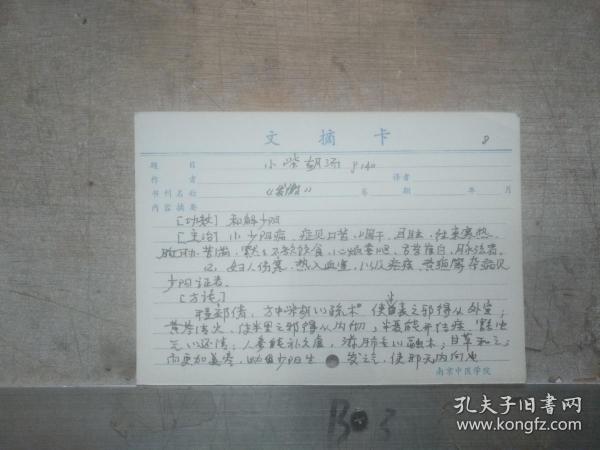 文摘卡
8
题目 小柴胡汤 P140
作者 译者
书刊名社 年 月
内容摘要
[功效] 和解少阳
[主治] 1、少阳病，症见口苦，咽干，目眩，往来寒热，
胸胁苦满，默默不欲饮食，心烦喜呕，舌苔薄白，脉弦者。
2、妇人伤寒，热入血室，以及疟疾、黄疸等杂病见
少阳证者。
[方论]
程郊倩，方中柴胡以疏木，使半表之邪得从外宣，
黄芩清火，使半里之邪得从内彻；半夏能开结痰，豁浊
气以还清；人参能补久虚，滋肺金以融木；甘草和之；
而更加姜枣，助少阳生发之气，使邪无内向也
南京中医学院
B03
孔夫子旧书网
www.kongfz.com